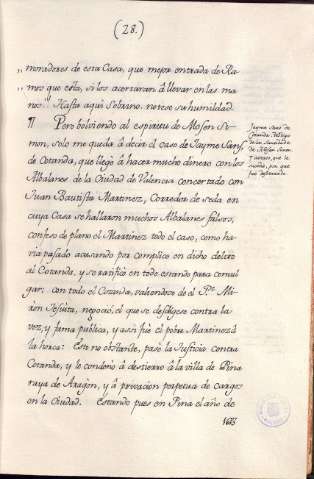 (28.)
„ moradores de esta Casa, que mejor entrada de Ra-
„ mos que esta, si los acertaran à llevar en las ma-
nos. Hasta aqui Sobrino. notese su humildad.
¶ Pero bolviendo al espiritu de Mosen Si-
mon, solo me queda à decir el caso de Jayme Sanz
de Cotanda, que llegò à hacer mucho dinero con los
Albalanes de la Ciudad de Valencia concertado con
Juan Bautista Martinez, Corredor de seda en
cuya Casa se hallaron muchos Albalanes falsos,
confesò de plano el Martinez todo el caso, como ha-
via pasado acusando por complice en dicho delito
al Cotanda, y se ratificò en todo estando para comul-
gar: con todo el Cotanda, valiendose de el P.e
Jesuita, negociò, el que se desdigese contra la
voz, y fama publica, y assi fue el pobre Martinez à
la horca: Esto no obstante, pasò la Justicia contra
Cotanda, y le condenò à destierro à la villa de Pina
raya de Aragon, y à privacion perpetua de cargos
en la Ciudad. Estando pues en Pina el año de
Jayme Sanz de
Cotanda
de Mosen Simon